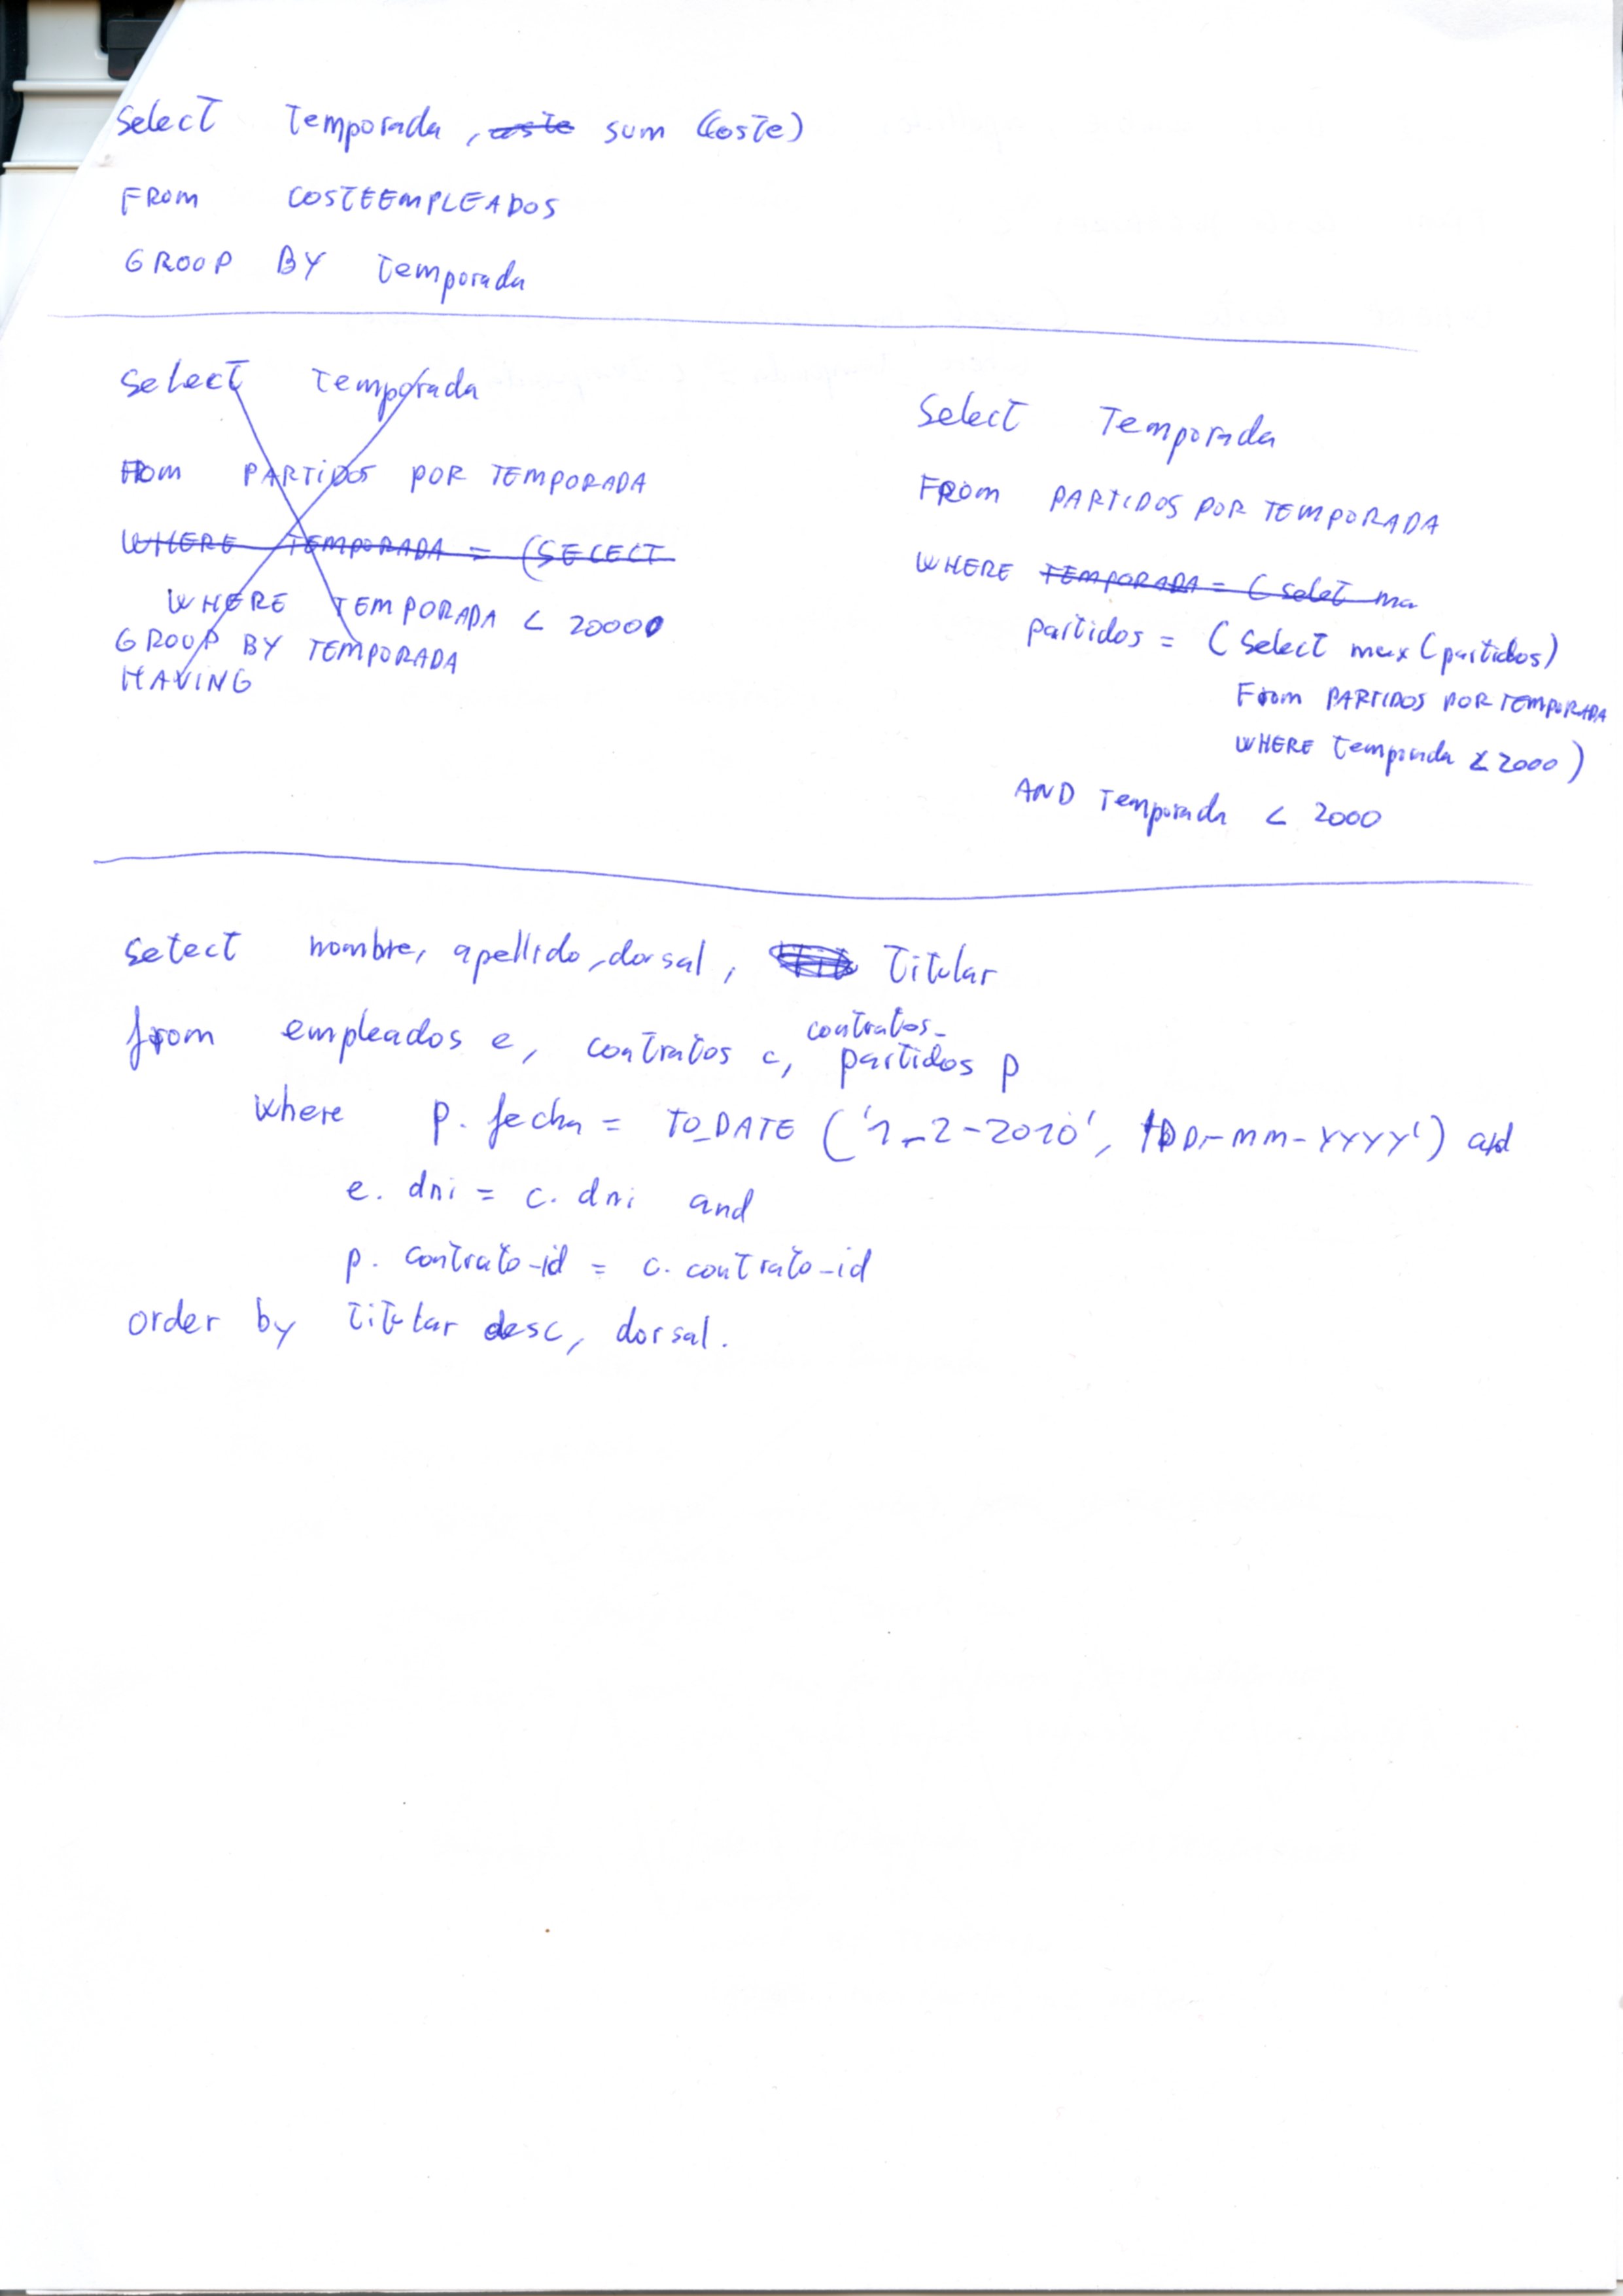 Select Temporada, coste sum (coste)
FROM COSTEEMPLEADOS
GROOP BY Temporada
Select Temporada
From PARTIDOS POR TEMPORADA
WHERE TEMPORADA = (SELECT
WHERE TEMPORADA < 20000
GROUP BY TEMPORADA
HAVING
Select Temporada
FROM PARTIDOS POR TEMPORADA
WHERE TEMPORADA = (Select ma
partidos = (Select max (partidos)
From PARTIDOS POR TEMPORADA
WHERE Temporada < 2000)
AND Temporada < 2000
Select nombre, apellido, dorsal, Titular
from empleados e, contratos c, contratos_
partidos p
where p.fecha = TO_DATE ('1-2-2010', 'DD-MM-YYYY') and
e.dni = c.dni and
p.contrato_id = c.contrato_id
order by titular desc, dorsal.